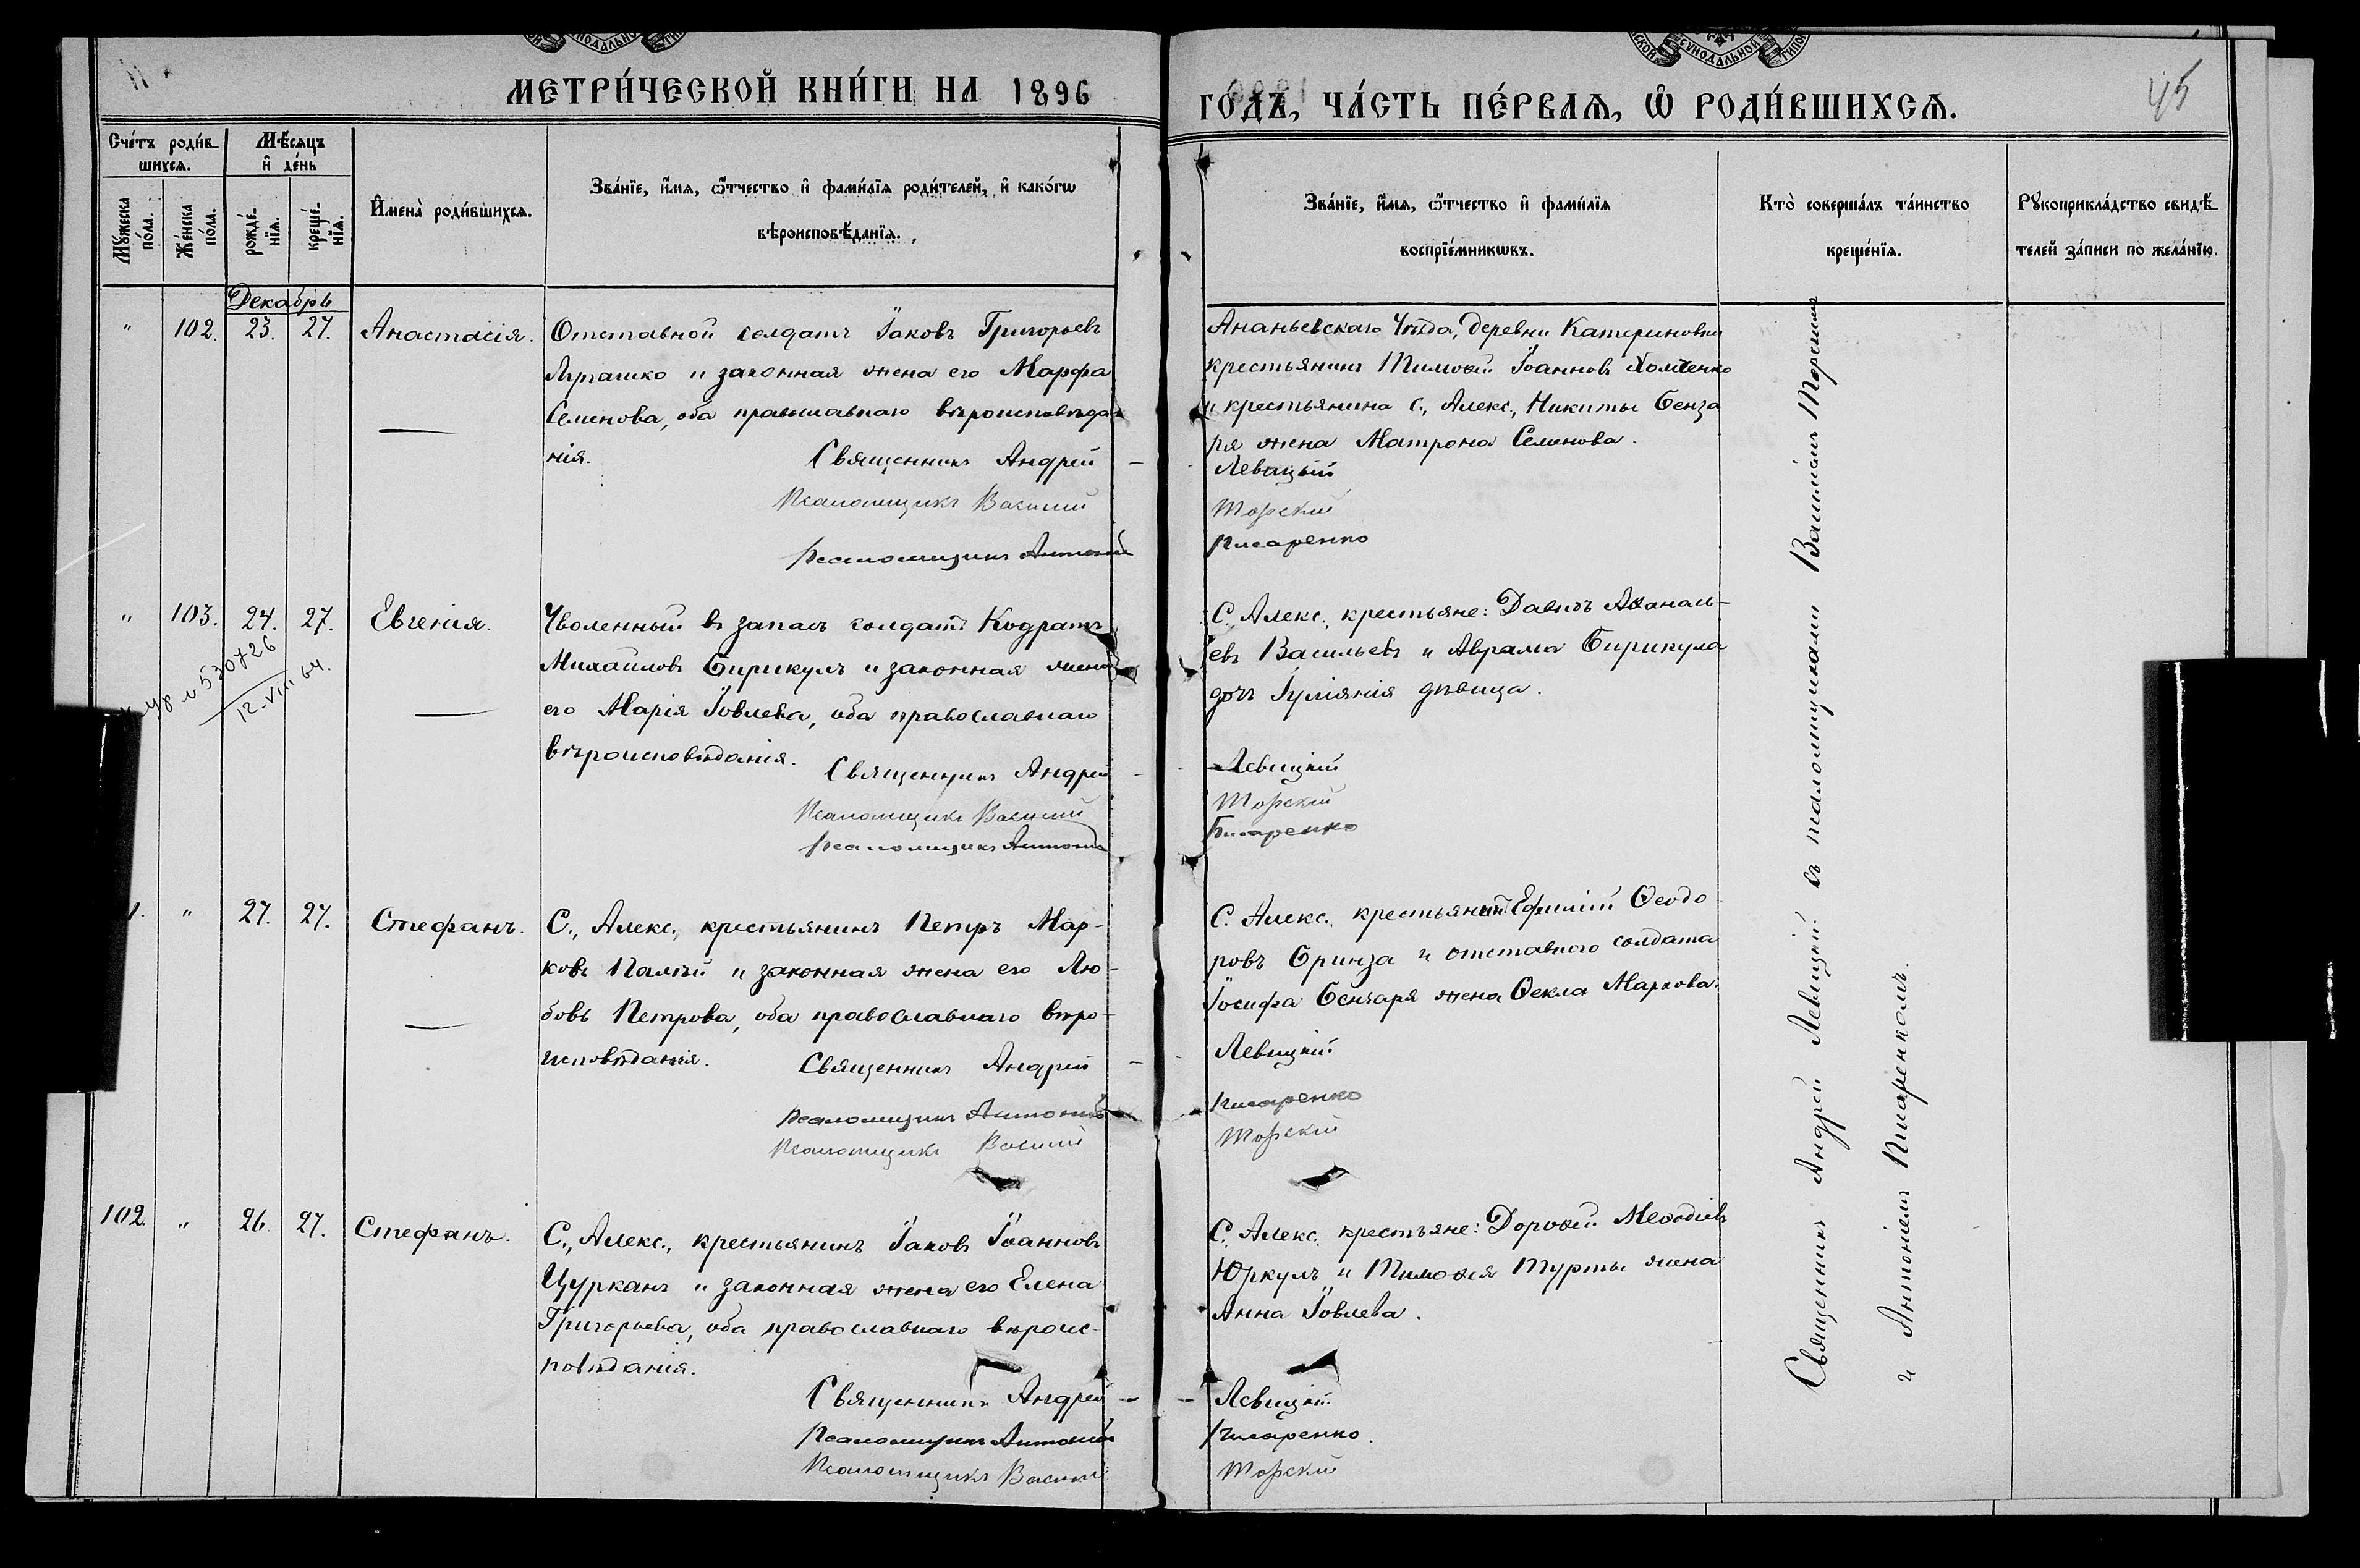 МЕТРИ́ЧЕСКОЙ КНИ́ГИ НА 1896
ГО́ДЪ, ЧА́СТЬ ПЕ́РВАѦ, Ѡ҆ РОДИ́ВШИХСѦ.
45
Сче́тъ роди́в-
шихсѧ.
Мѣ́сѧцъ
и҆ де́нь
Мꙋ́жеска
по́ла.
Же́нска
по́ла.
рожде́-
нїѧ.
креще́-
нїѧ.
И҆мена̀ роди́вшихсѧ.
Зва́нїе, и҆́мѧ, ѻ҆́тчество и҆ фами́лїѧ роди́телей, и҆ како́гѡ
вѣроисповѣ́данїѧ.
Зва́нїе, и҆́мѧ, ѻ҆́тчество и҆ фами́лїѧ
воспрїе́мникѡвъ.
Кто̀ соверша́лъ та́инство
креще́нїѧ.
Рꙋкоприкла́дство свидѣ́-
телей за́писи по жела́нїю.
Декабрь
" 102. 23. 27. Анастасія.
Отставной солдатъ Іаковъ Григорьевъ
и законная жена его Марфа
Семенова, оба православнаго вѣроисповѣда-
нія.
Священникъ Андрей
Псаломщикъ Василий
Псаломщикъ Антоній
Ананьевскаго Уѣзда, деревни Катериновки
крестьянинъ Тимоѳей Іоанновъ Хоменко
и крестьянина С., Алекс., Никиты Бенза
ря жена Матрона Семенова.
Левицкій
Торский
Писаренко
" 103. 24. 27. Евгенія.
12-VIII 64.
Уволенный въ запасъ солдатъ Кодратъ
Михаиловъ Бирикулъ и законная жена
его Марія Іовлева, оба православнаго
вѣроисповѣданія.
Священникъ Андрей
Псаломщикъ Василий
Псаломщикъ Антоній
С. Алекс. крестьяне: Давидъ Аѳанась-
евъ Васильевъ и Аврама Бирикула
дочь Іуліанія дѣвица.
Левицкій
Торский
Писаренко
" 27. 27. Стефанъ.
С., Алекс., крестьянинъ Петръ Мар-
ковъ Палій и законная жена его Лю-
бовь Петрова, оба православнаго вѣро-
исповѣданія.
Священникъ Андрей
Псаломщикъ Антоній
Псаломщикъ Василий
С. Алекс. крестьянинъ Ефимій Ѳеодо
ровъ Бринза и отставного солдата
Іосифа Бензаря жена Ѳекла Маркова.
Левицкій
Писаренко
Торский
102. " 26. 27. Стефанъ.
С., Алекс., крестьянинъ Іаковъ Іоанновъ
Цурканъ и законная жена его Елена
Григорьева, оба православнаго вѣроис-
повѣданія.
Священникъ Андрей
Псаломщикъ Антоній
Псаломщикъ Василий
С. Алекс. крестьяне: Дороѳей Меѳодіевъ
Юркулъ и Тимоѳея Турты жена
Анна Іовлева.
Левицкій
Писаренко.
Торский
Священникъ Андрей Левицкій съ псаломщиками Василіемъ Торскимъ
и Антоніемъ Писаренкомъ.